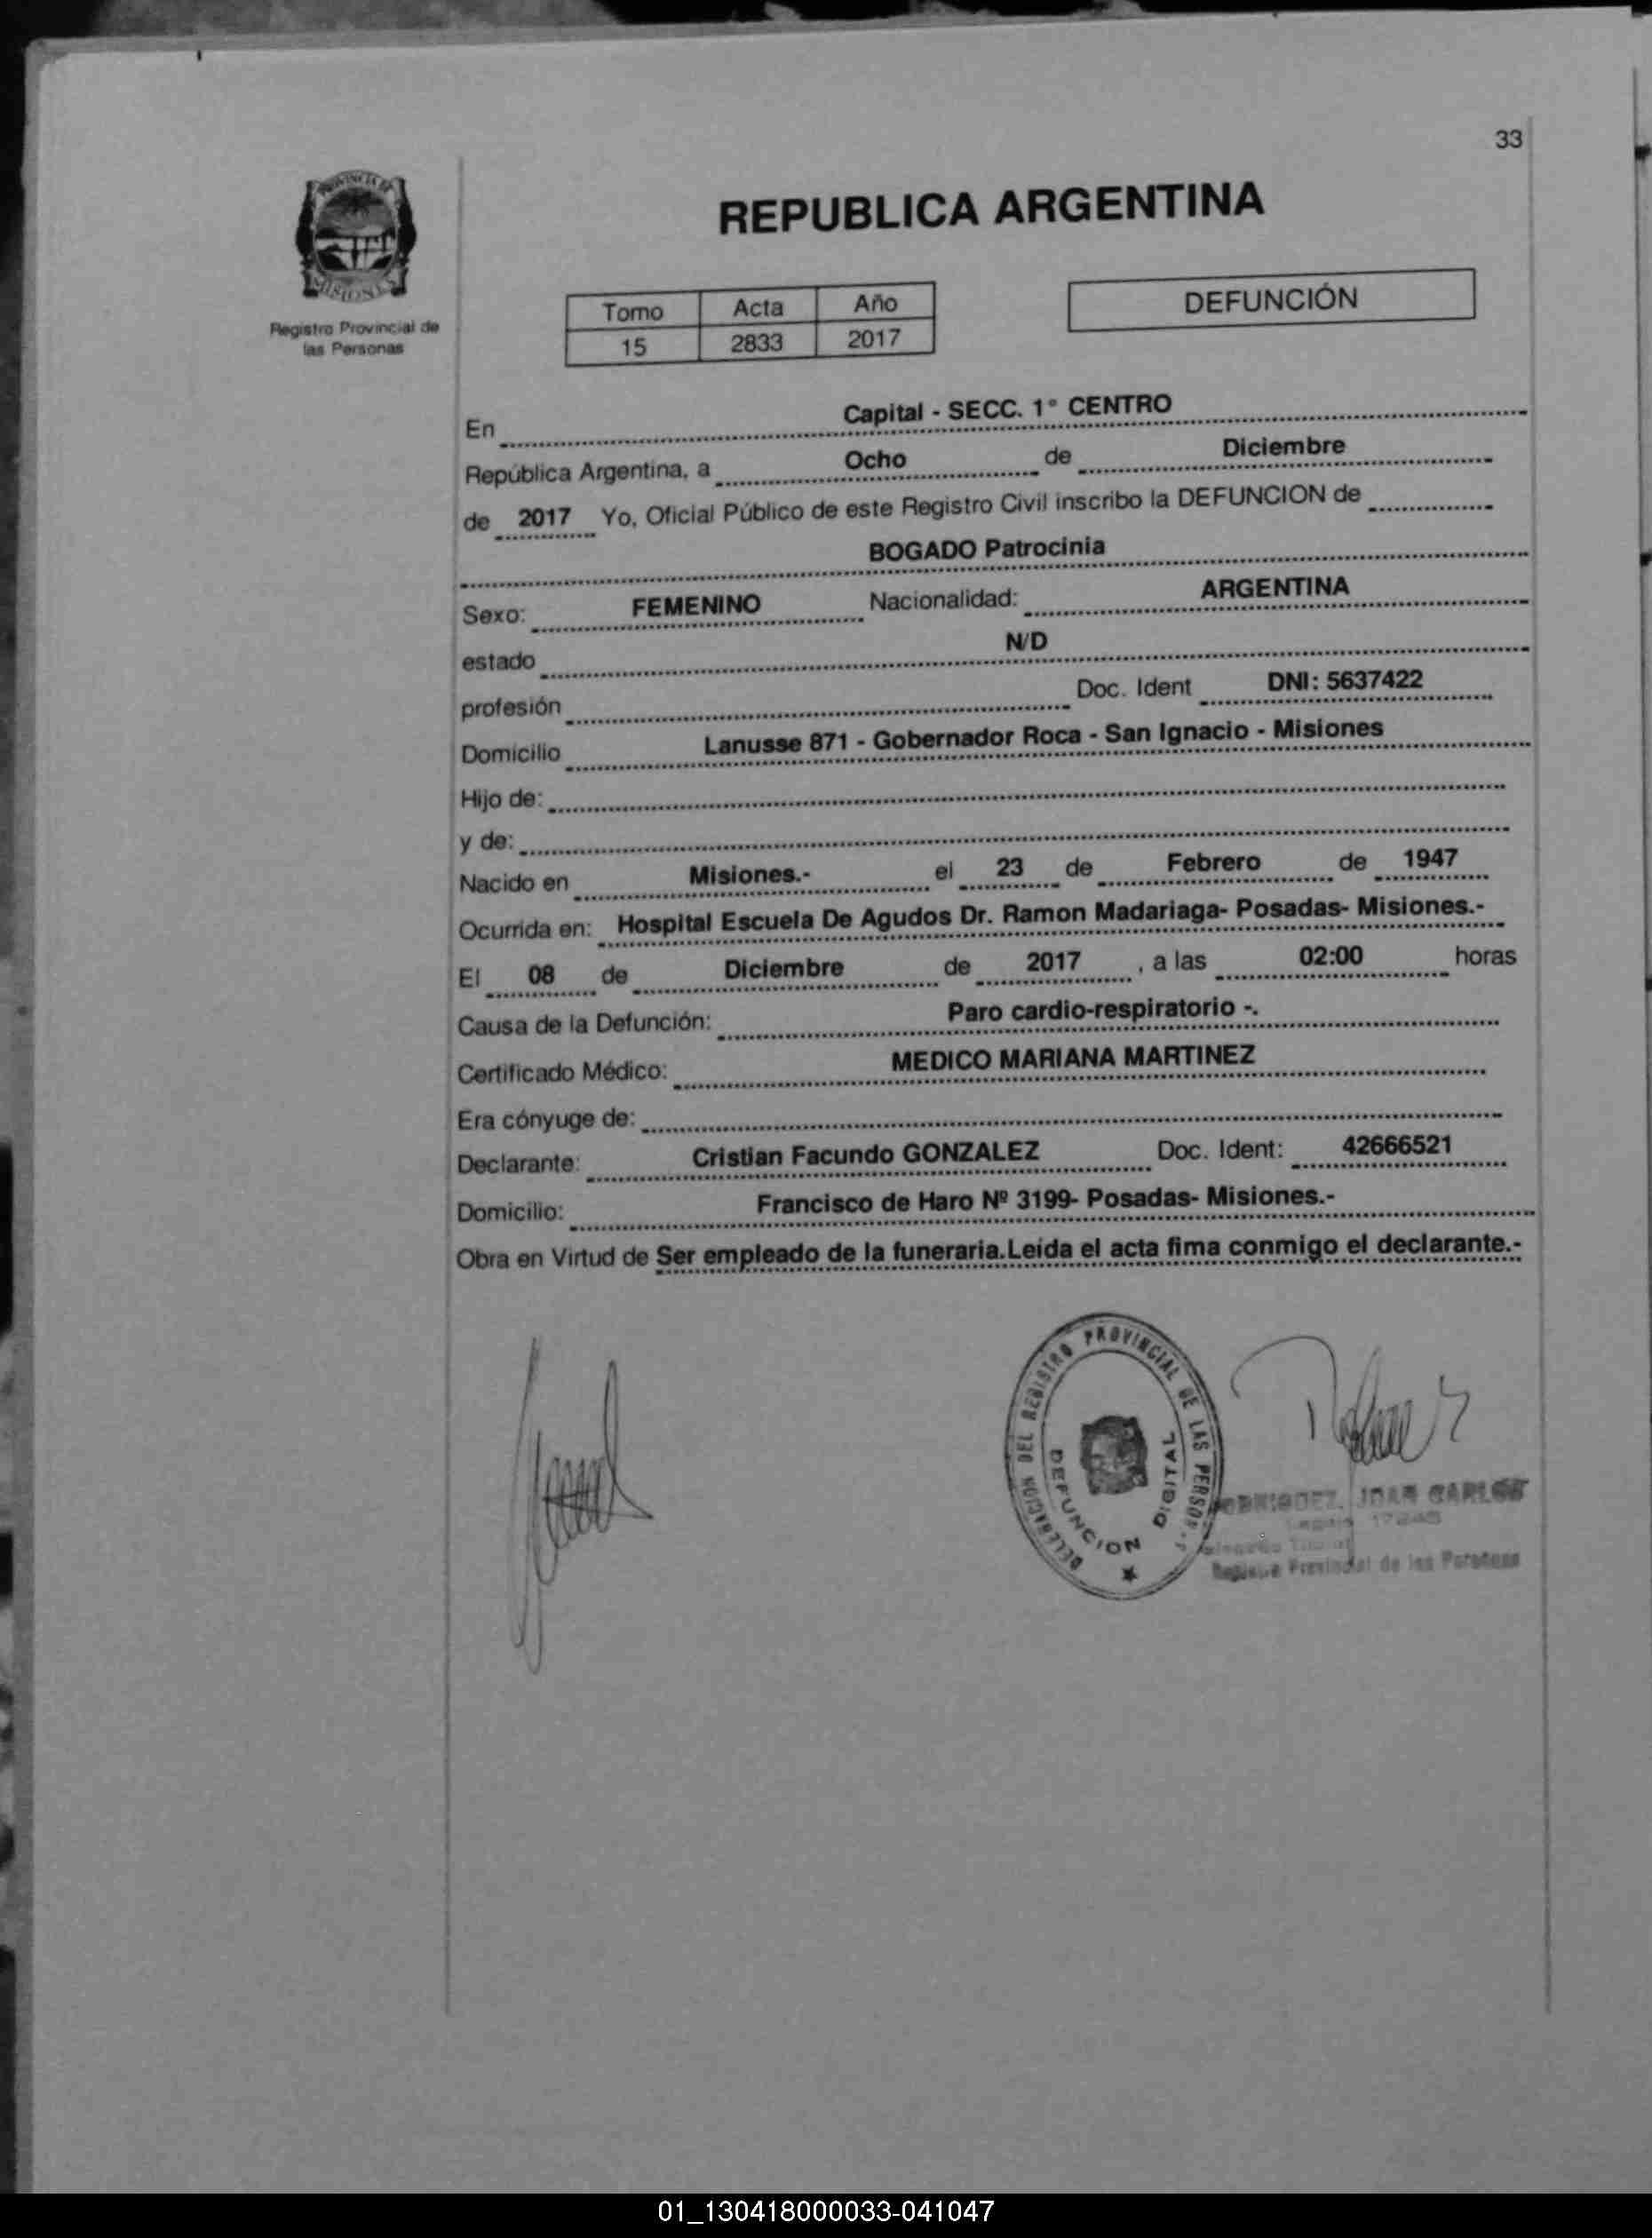 33
PROVINCIA DE
MISIONES
Registro Provincial de
las Personas
REPUBLICA ARGENTINA
Tomo Acta Año
15 2833 2017
DEFUNCIÓN
En Capital - SECC. 1° CENTRO
República Argentina, a Ocho de Diciembre
de 2017 Yo, Oficial Público de este Registro Civil inscribo la DEFUNCION de
BOGADO Patrocinia
Sexo: FEMENINO Nacionalidad: ARGENTINA
estado N/D
profesión Doc. Ident DNI: 5637422
Domicilio Lanusse 871 - Gobernador Roca - San Ignacio - Misiones
Hijo de:
y de:
Nacido en Misiones.- el 23 de Febrero de 1947
Ocurrida en: Hospital Escuela De Agudos Dr. Ramon Madariaga- Posadas- Misiones.-
El 08 de Diciembre de 2017 , a las 02:00 horas
Causa de la Defunción: Paro cardio-respiratorio -.
Certificado Médico: MEDICO MARIANA MARTINEZ
Era cónyuge de:
Declarante: Cristian Facundo GONZALEZ Doc. Ident: 42666521
Domicilio: Francisco de Haro Nº 3199- Posadas- Misiones.-
Obra en Virtud de Ser empleado de la funeraria.Leida el acta fima conmigo el declarante.-
DEL REGISTRO PROVINCIAL DE LAS
DEFUNCION DIGITAL
JUAN CARLOS
Provincial de las Personas
01_130418000033-041047